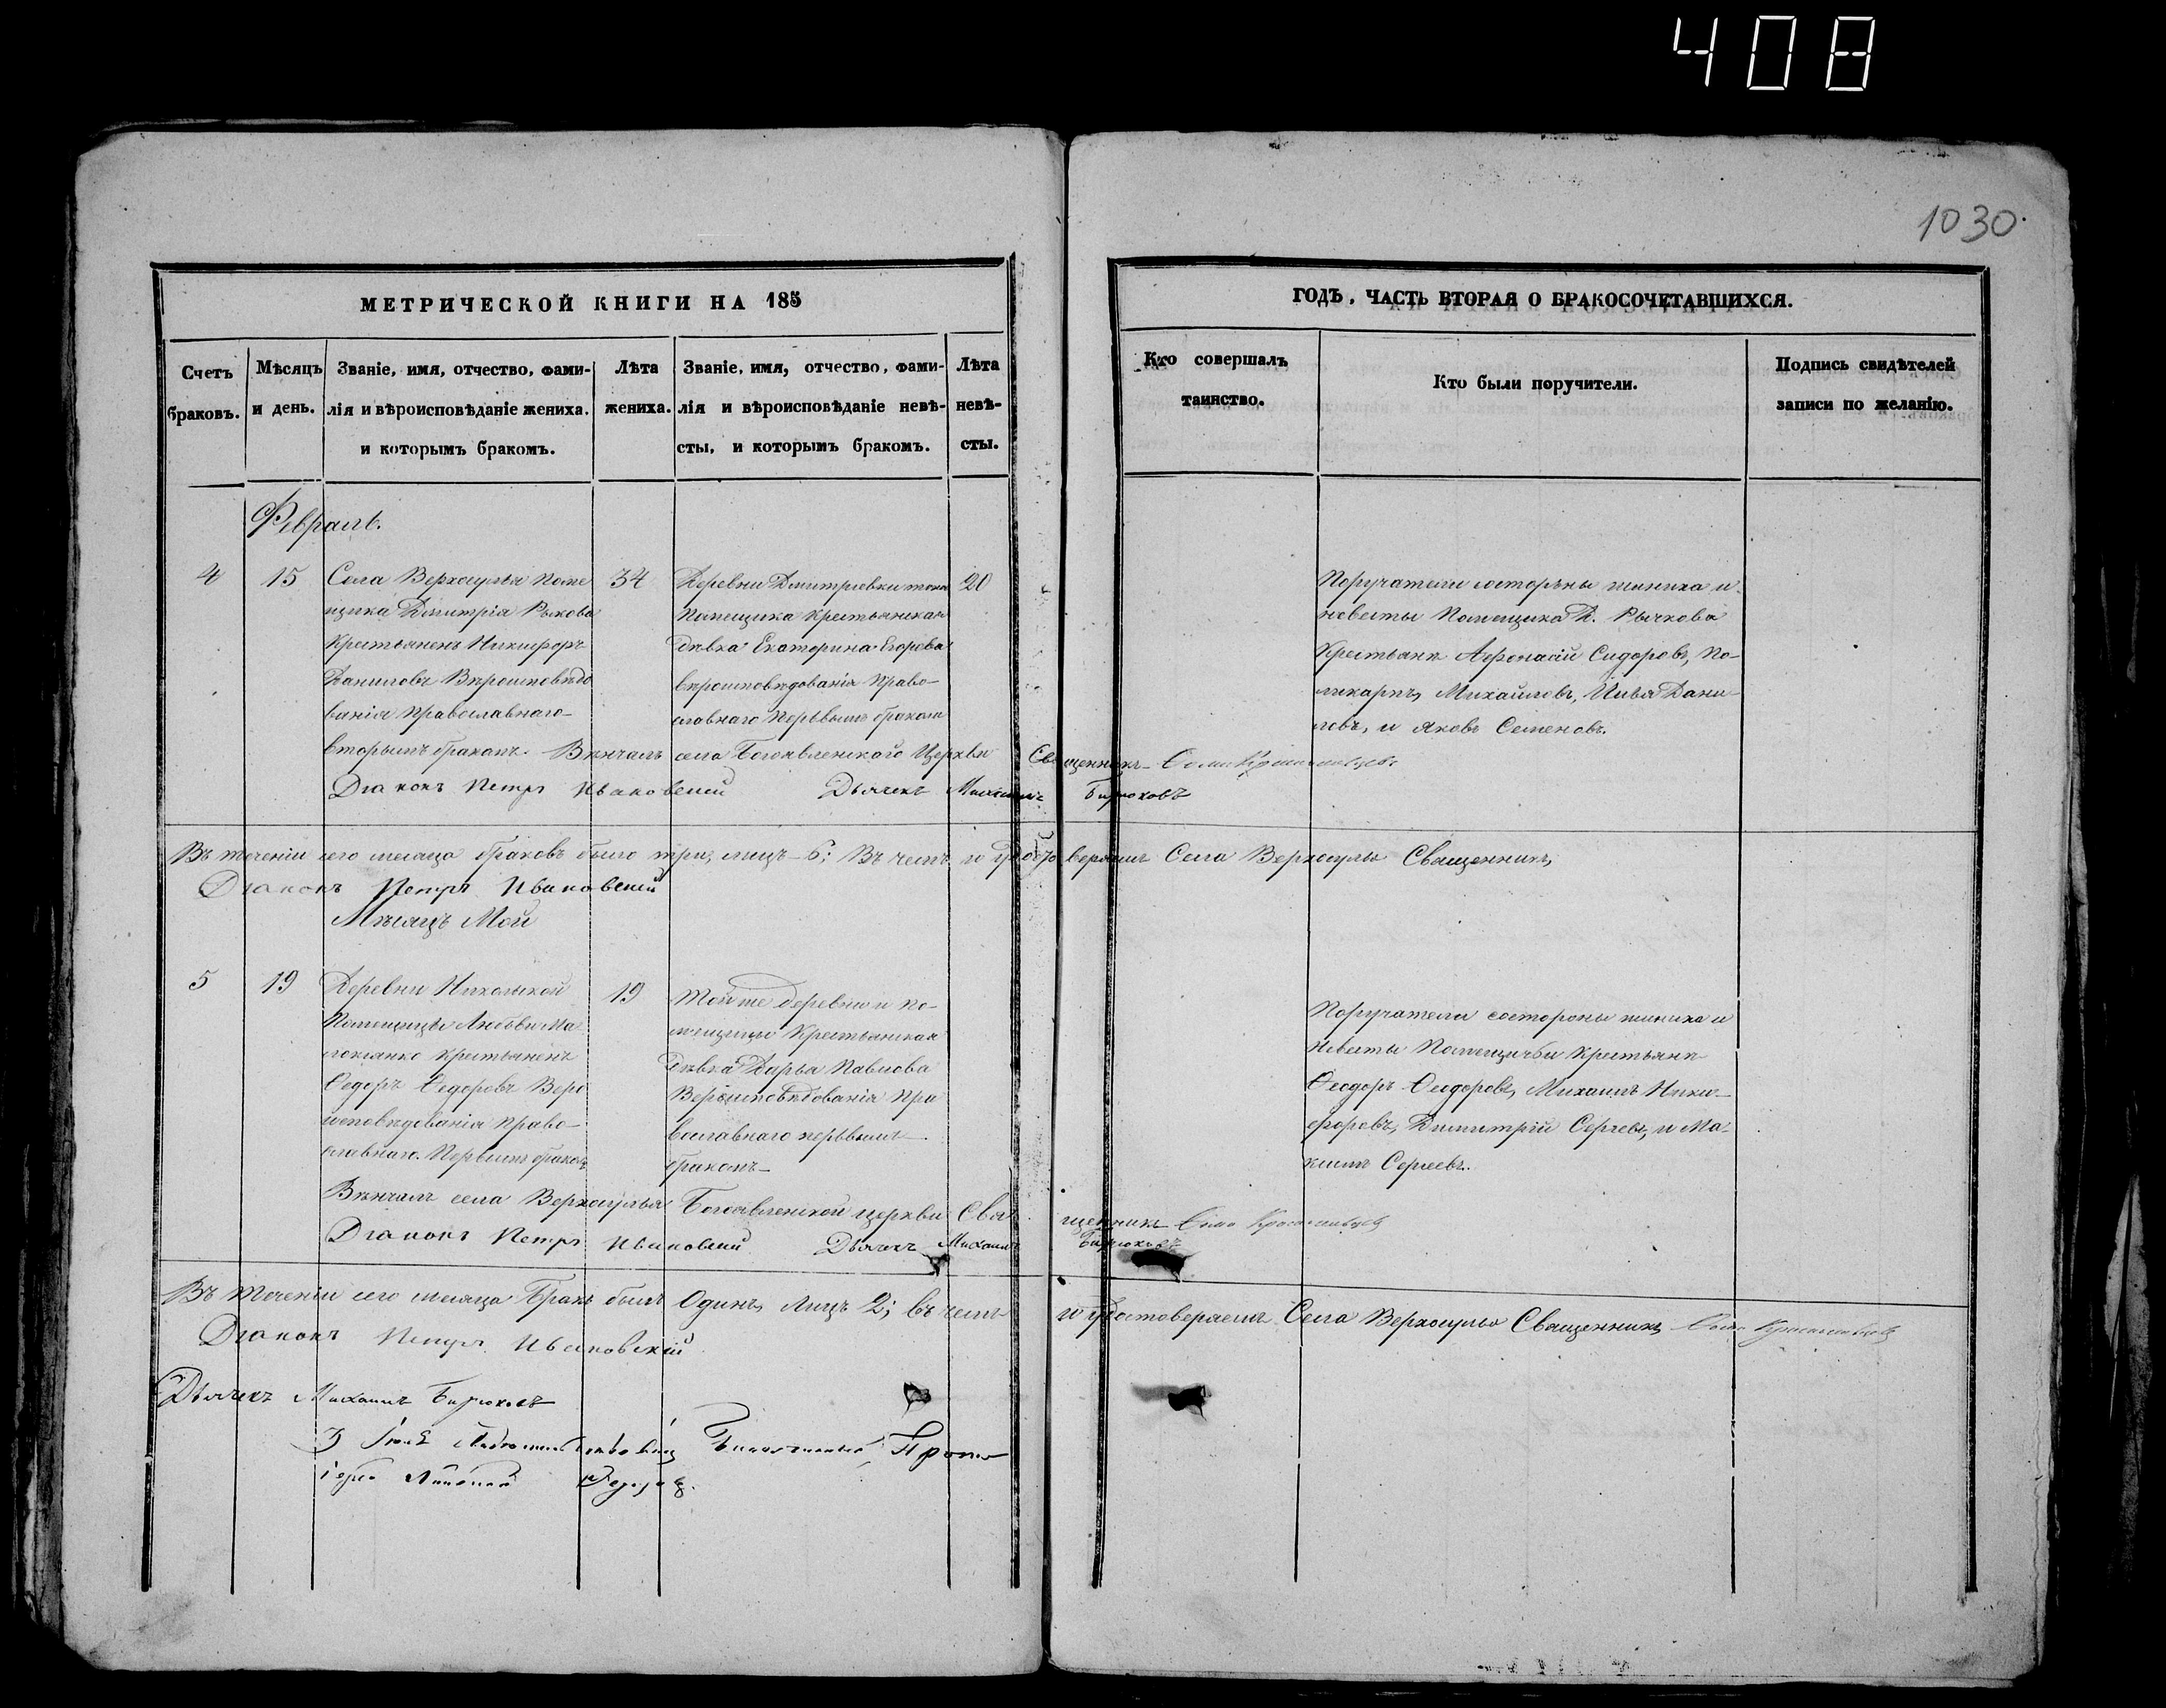 408
1030.
МЕТРИЧЕСКОЙ КНИГИ НА 185
ГОДЪ, ЧАСТЬ ВТОРАЯ О БРАКОСОЧЕТАВШИХСЯ.
Счетъ браковъ.
Мѣсяцъ и день.
Званіе, имя, отчество, фами-
лія и вѣроисповѣданіе жениха.
и которымъ бракомъ.
Лѣта
жениха.
Званіе, имя, отчество, фами-
лія и вѣроисповѣданіе невѣ-
сты, и которымъ бракомъ.
Лѣта
невѣ-
сты.
Кто совершалъ
таинство.
Кто были поручители.
Подпись свидѣтелей
записи по желанію.
Февраль.
4
15
Села Верхосулья поме
щика Дмитрія Рыкова
Крестьяненъ Никифоръ
Даниловъ Вѣроисповѣдо
ванія православнаго
вторымъ бракомъ.
34
Деревни Дмитровки
Помещика крестьянская
дѣвка Екатерина Егорова
вѣроисповѣдованія право-
славнаго первымъ бракомъ
20
Поручатели состороны жениха и
невесты Помещика Д. Рычкова
Крестьяне Афонасій Сидоровъ, По-
ликарпъ Михайловъ, Илья Дани-
ловъ, и Яковъ Семеновъ.
Вѣнчалъ села Богоявленского Церкви Священникъ
Діаконъ Петръ Ивановскій Дьячекъ Михаилъ Бирюковъ
Въ теченіи сего месяца браковъ было три, лицъ 6; Въ чемъ и удостоверяемъ Села Верхосулья Священникъ
Діаконъ Петръ Ивановскій
Мѣсяцъ Май
5
19
Деревни Никольской
Помещицы Любови Ма
крестьяненъ
Федоръ Федоровъ Веро
исповѣдованія право-
славнаго. Первымъ бракомъ
19
Тойже деревни и по-
мещицы Крестьянская
Дѣвка Дарья Павлова
Вероисповѣдованія пра
вославнаго первымъ
бракомъ
Поручатели состороны жениха и
Невесты Помещичьи крестьяне
Феодоръ Феодоровъ, Михаилъ Ники-
форовъ, Димитрій Сергеевъ, и Ма-
ксимъ Сергеевъ.
Вѣнчалъ села Верхосулья Богоявленской церкви Священникъ
Діаконъ Петръ Ивановскій Дьячекъ Михаилъ Бирюковъ
Въ теченіи сего месяца Бракъ былъ Одинъ, Лицъ 2; въ чемъ и удостоверяемъ Села Верхосулья Священникъ
Діаконъ Петръ Ивановскій
Дьячекъ Михаилъ Бирюковъ